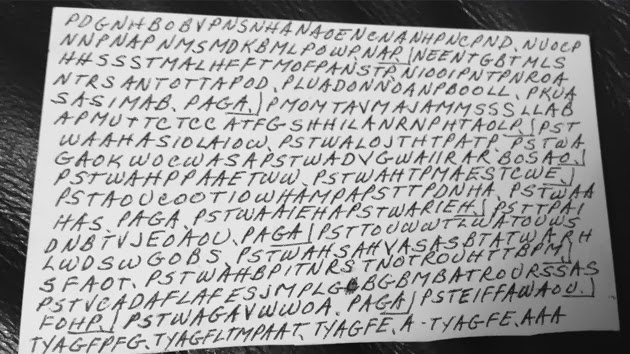 PDGNHBOBVPNSNHANAOENCNANHPNCPND. NUOCP
NNPNAPNMSMDKBMLPOWP. NAP.|NEENTGBTMLS
HHSSSTMALHFFTMOFPANSTP. NIOOIPNTPNROA
NTRSANTOTTAPOD. PLUADONNOANPBOOLL. PKUA
SASIMAB. PAGA.|PMOMTAVMAJAMMSSSLLAB
APMUTTCTCCATFGSHHILANRNPHTAOLP.|PST
WAAHASIOLAIOW. PSTWALOJTHTPATP. PSTWA
GAOKWOCWASAPSTWADVGWAIIRAR. BOSAO.|
PSTWAHPPAAETWW. PSTWAHTPMAESTCWE.|
PSTAOUCOOTIOWHAMPAPSTTPDNHA. PSTWAA
HAS. PAGA. PSTWAAIEHAPSTWARIEH.|PSTTDAI
DNBTVJEOAOU. PAGA|PSTTOUWWTLWATOUWS
LWDSWGOBS. PSTWAHSAHVASASBTATWAARH
SFAOT. PSTWAHBPITNRSTNOTROUHTTBPM.|
PSTVCADAFLAFESJMPLG BGBMBATROURSSAS
FOHP.|PSTWAGAVWWOA. PAGA|PSTEIFFAWAOU.|
TYAGFPFG. TYAGFLTMPAAT. TYAGFE. A-TYAGFE. AAA